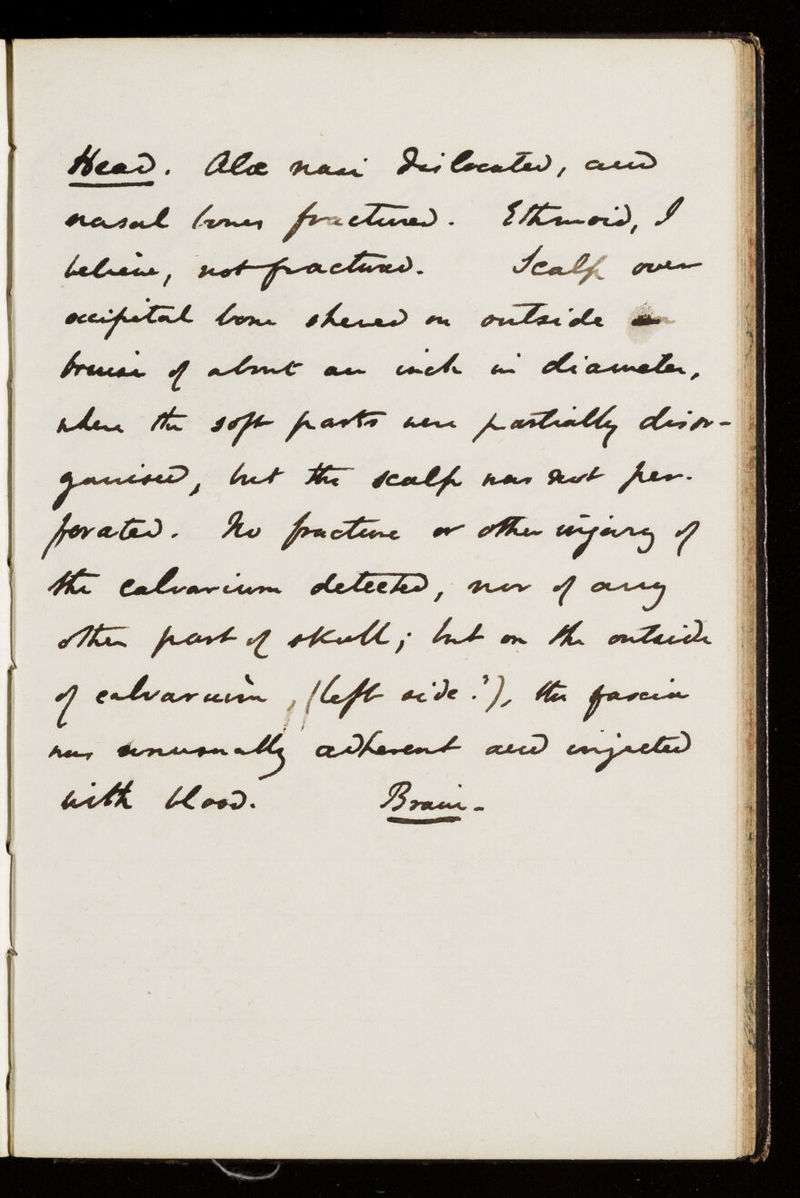 Head. Alæ nasi dislocated, and
nasal bones fractured. Ethmoid, I
believe, not fractured. Scalp over
occipital bone shewed on outside a
bruise of about an inch in diameter,
where the soft parts were partially disor-
ganised, but the scalp was not per-
forated. No fracture or other injury of
the calvarium detected, nor of any
other part of skull; but on the outside
of calvarium, (left side?), the fascia
was unusually adherent and injected
with blood. Brain-